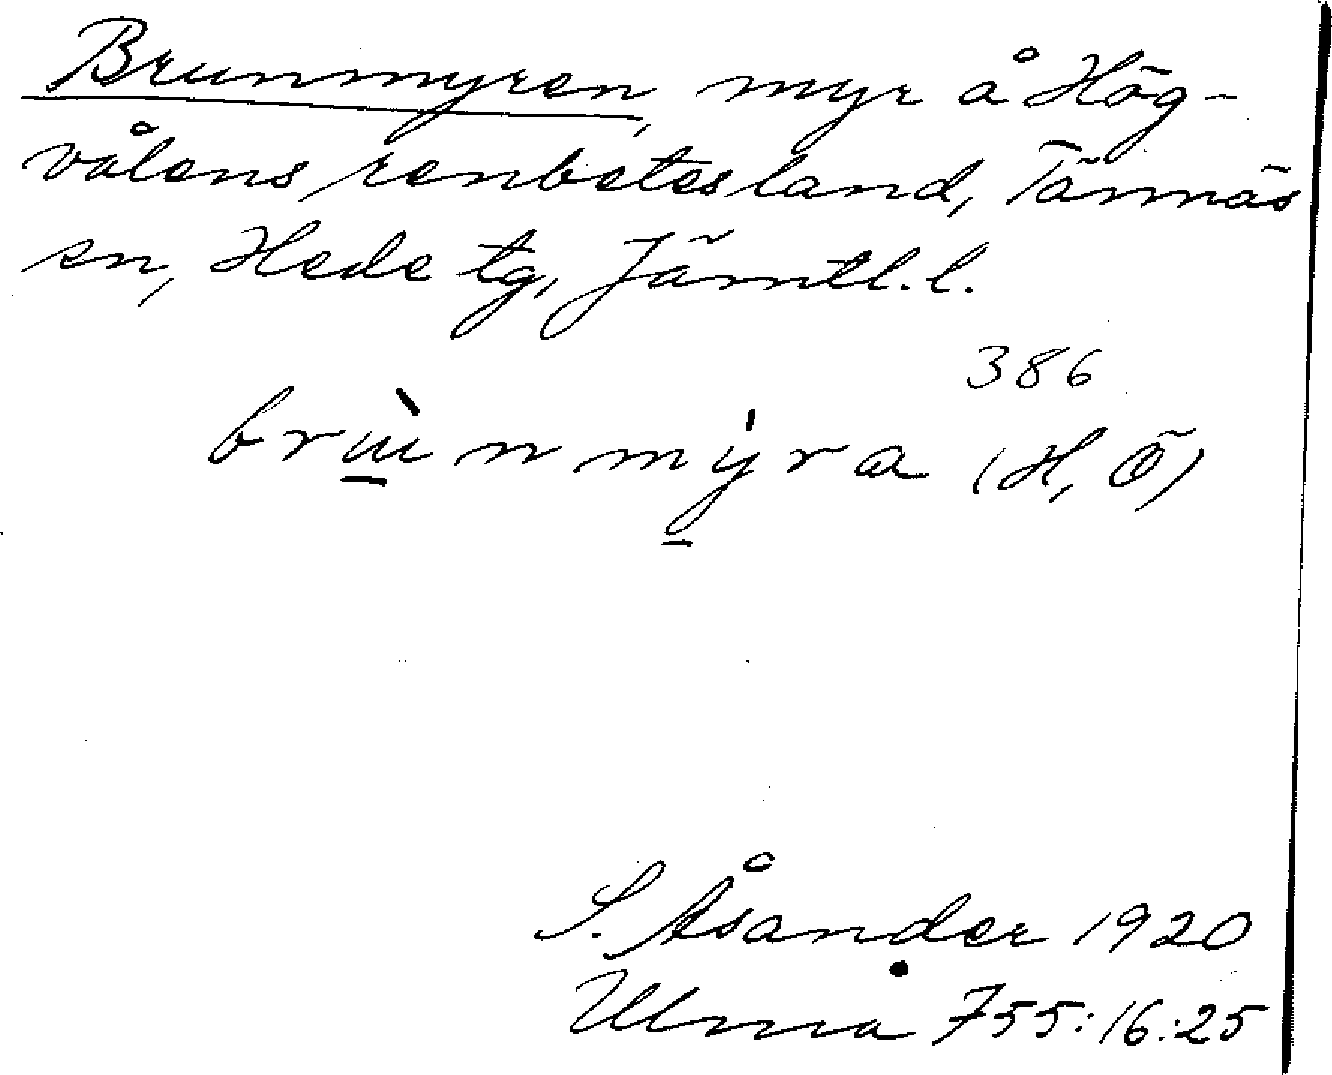 Brunmyren, myr å Hög-
vålens renbetesland, Tännäs
sn, Hede tg, Jämtl. l.
386
brùnmýra (H, Ö)
S. Åsander 1920
Ulma 755:16:25